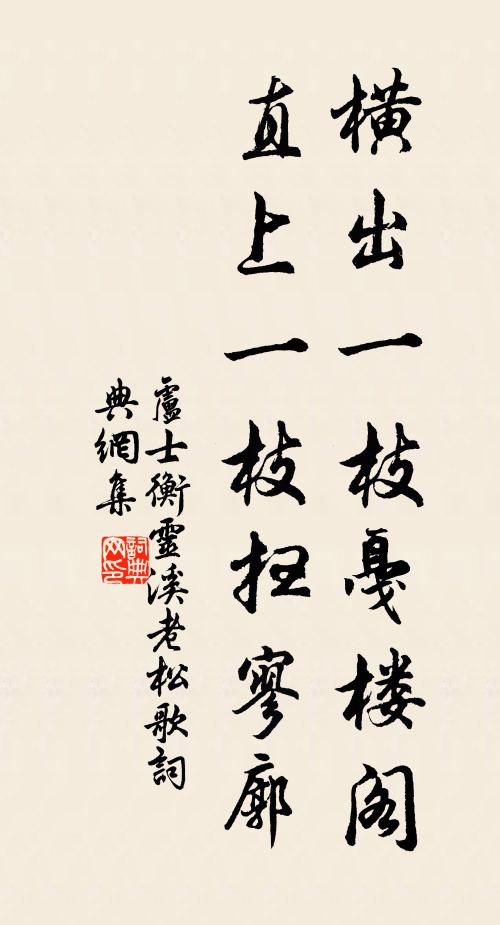 横出一枝戛楼阁
直上一枝扫寥廓
盧士衡靈溪老松歌詞
典網集
詞典网印